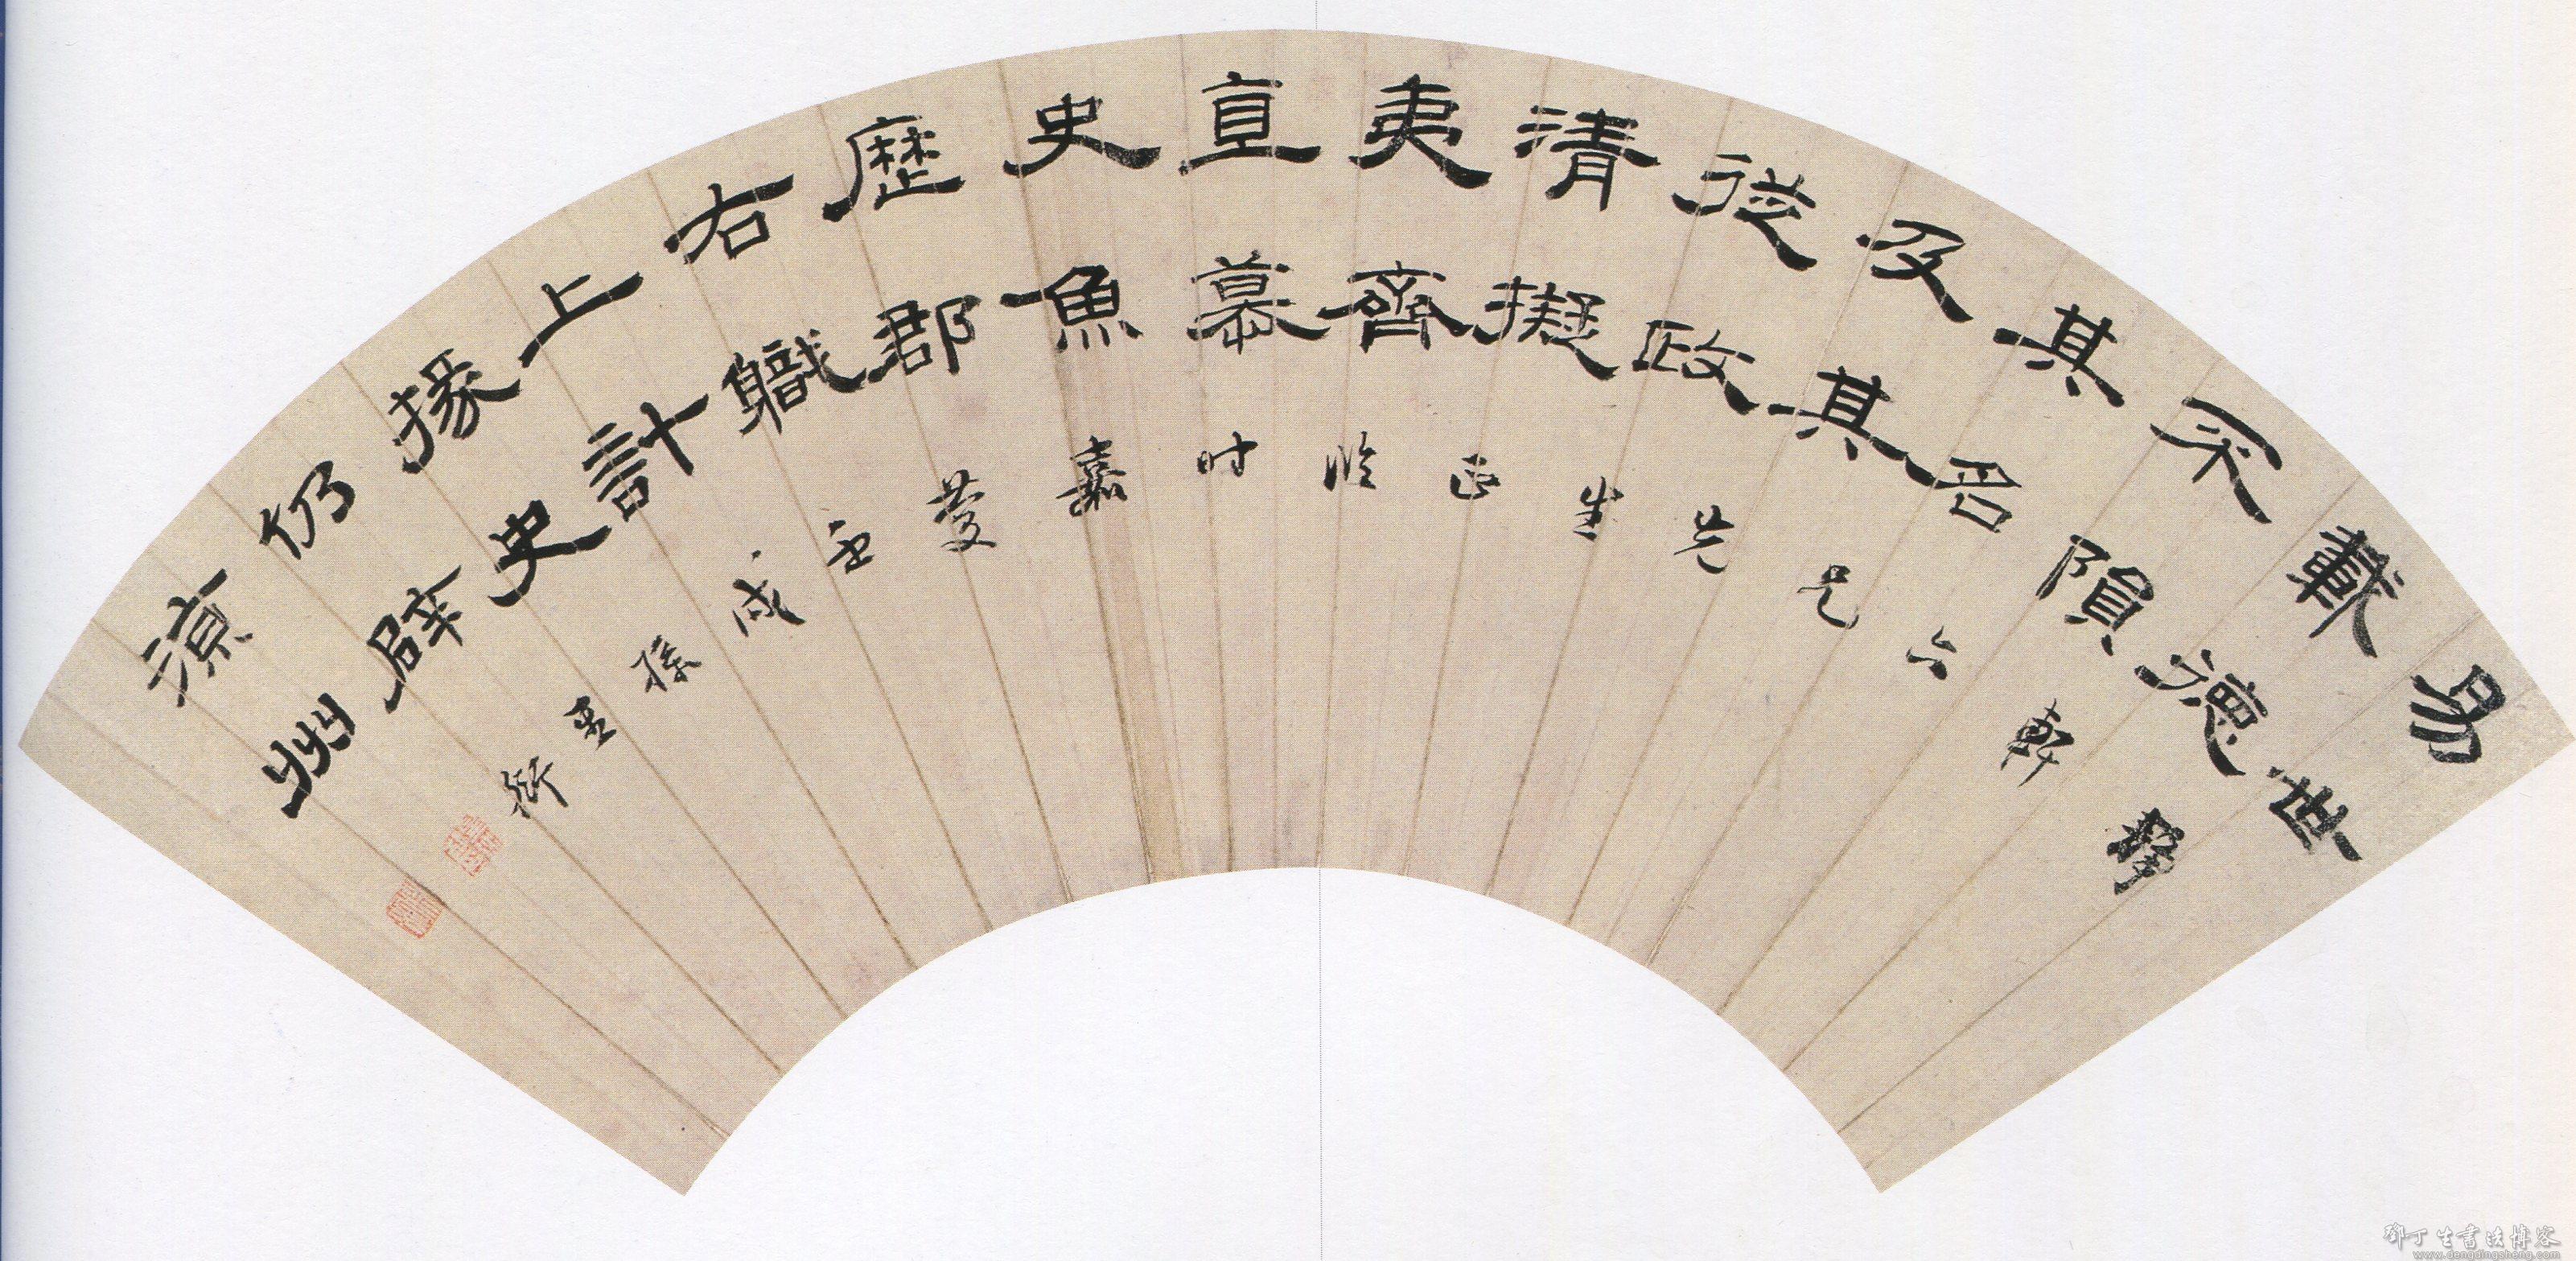 易世
載德
不隕
其名
及其
從政
清擬
夷齊
直慕
史魚
歷郡
右職
上計
掾史
仍辟
涼州
軒六兄先生正臨时嘉慶壬戌孫星衍
鄧丁生書法博客
www.dengdingsheng.com